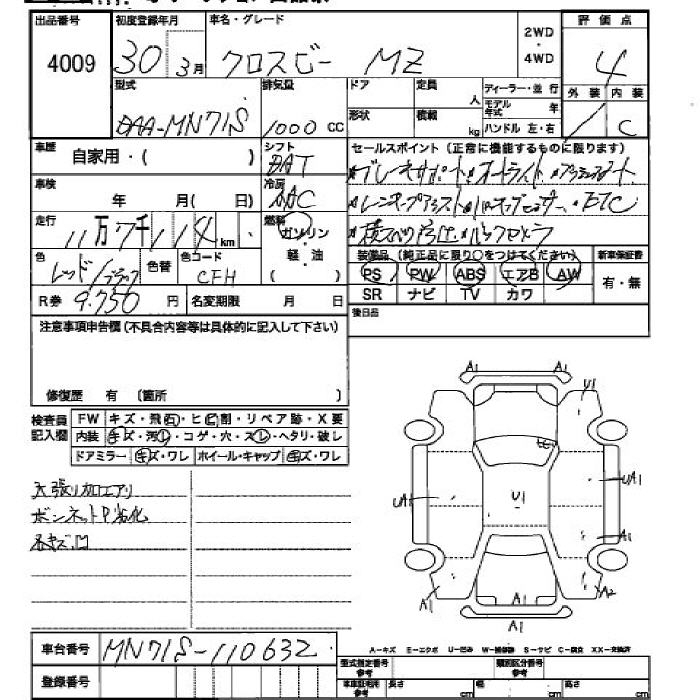 出品番号 初度登録年月 車名・グレード 2WD・4WD 評価点
4009 30 3月 クロスビー MZ 4
型式 排気量 ドア 定員 人 ディーラー・並行 外装 内装
DAA-MN71S 1000 CC 形状 積載 kg モデル年式 年 ハンドル 左・右 C
車歴 自家用・( ) シフト セールスポイント(正常に機能するものに限ります)
車検 年 月(日) 冷房 AAC
走行 11万7千114km 燃料 ガソリン・軽・油 ( )
・ETC
装備品(純正品に限り○をつけてください) 新車保証書
色 レッド/ブラック 色替 色コード CFH PS PW ABS エアB AW 有・無
R券 9,750円 名変期限 月 日 SR ナビ TV カワ
後日品
注意事項申告欄(不具合内容等は具体的に記入して下さい)
修復歴 有 (箇所 )
検査員記入欄 FW キズ・飛石・ヒビ割・リペア跡・X要
内装 キズ・汚レ・コゲ・穴・スレ・ヘタリ・破レ
ドアミラー キズ・ワレ ホイール・キャップ キズ・ワレ
天張り加工アリ
ボンネットP劣化
各キズ凹
A1 A1 U1
UA1 U1 UA1
A1
A1 A1 A2
車台番号 MN71S-110632
A-キズ E-エクボ U-凹み W-補修跡 S-サビ C-腐食 XX-交換済
登録番号 型式指定番号 参考 類別区分番号
車庫証明用 参考 長さ cm 幅 cm 高さ cm